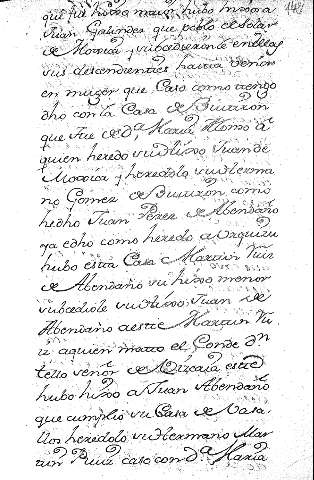 que fue hubo hijo a
Juan Galindez que poblo el solar
de Mornia y subcedieronle en el las
sus descendientes hasta benir
en muger que Caso como tengo
dho con la Casa de Butrron
que fue de D.ª Maria Alonso a
quien heredo su hijo Juan de
Moxica y heredolo su herma
no Gomez de Butrron como
hedho Juan Perez de Abendaño
ya edho como heredo a Urquizu
hubo esta Casa Martin Ruiz
de Abendaño su hijo menor
subcediole su hijo Juan de
Abendaño a este Martin Ru
iz a quien mato el Conde Dn
tello señor de Bizcaia este
hubo hijo a Juan Abendaño
que cumplio su Casa de Vasa
llos heredolo su hermano Mar
tin Ruiz caso con D.ª Maria